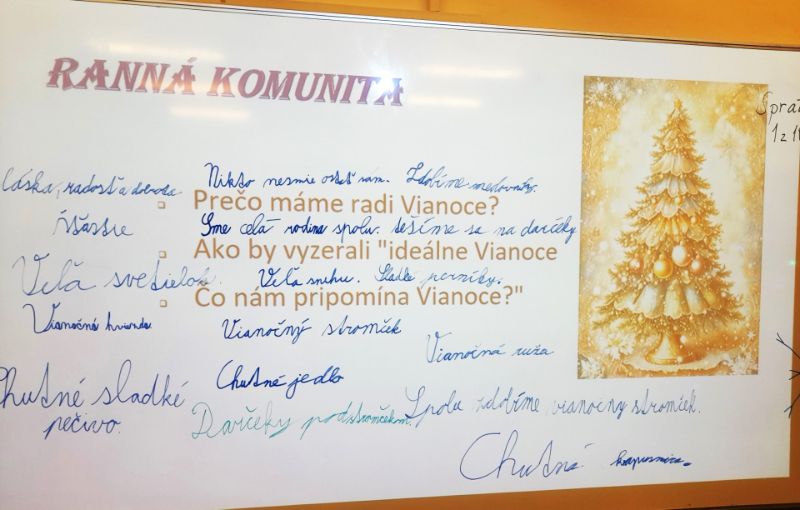 RANNÁ KOMUNITA
1 z 1
Láska, radosť a dobrota
Nikto nesmie ostať sám.
Zdobíme medovníky.
Prečo máme radi Vianoce?
Šťastie
Sme celá rodina spolu.
tešíme sa na darčeky
Ako by vyzerali "ideálne Vianoce
Veľa svetielok
Veľa snehu.
Sladké perníky.
Čo nám pripomína Vianoce?"
Vianočná hviezda
Vianočný stromček
Vianočná ruža
Chutné sladké
pečivo.
Chutné jedlo
Darčeky pod stromčekom.
Spolu zdobíme vianočný stromček.
Chutná kapustnica.